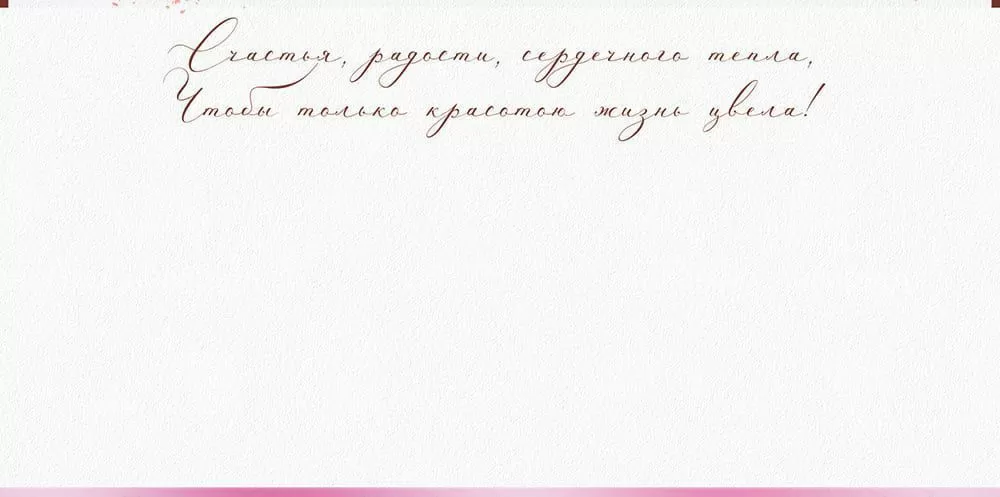 Счастья, радости, сердечного тепла,
Чтобы только красотою жизнь цвела!